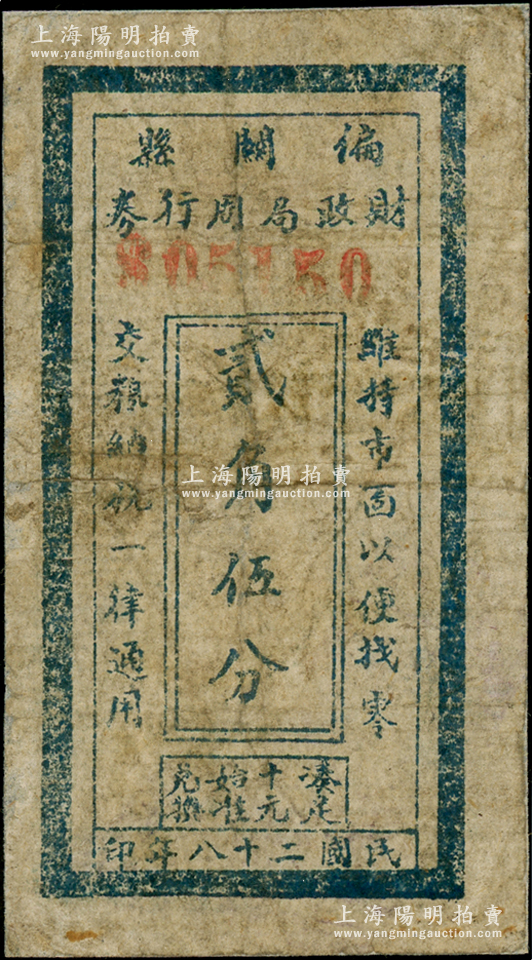 上海陽明拍賣
www.yangmingauction.com
偏關縣
財政局周行券
805150
維持市面以便找零
貳角伍分
交粮納稅一律通用
湊足十元始准兌換
民國二十八年印
上海陽明拍賣
www.yangmingauction.com
上海陽明拍賣
www.yangmingauction.com